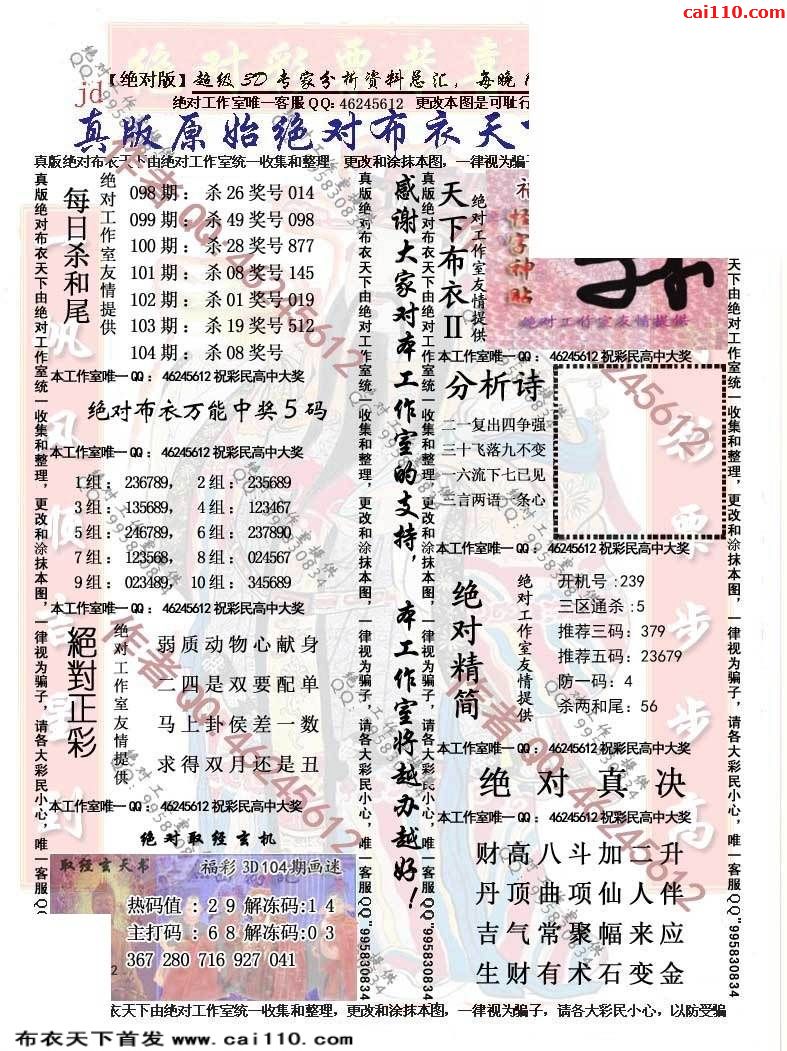 cai110.com
绝对彩票共享
【绝对版】超级3D专家分析资料总汇，每晚
jd
绝对工作室唯一客服QQ：46245612 更改本图是可耻行
真版原始绝对布衣天
真版绝对布衣天下由绝对工作室统一收集和整理 更改和涂抹本图，一律视为骗子
每日杀和尾
绝对工作室友情提供
098期：杀26奖号014
099期：杀49奖号098
100期：杀28奖号877
101期：杀08奖号145
102期：杀01奖号019
103期：杀19奖号512
104期：杀08奖号
本工作室唯一QQ：46245612祝彩民高中大奖
绝对布衣万能中奖5码
本工作室唯一QQ：46245612祝彩民高中大奖
1组：236789， 2组：235689
3组：135689， 4组：123467
5组：246789， 6组：237890
7组：123568， 8组：024567
9组：023489， 10组：345689
本工作室唯一QQ：46245612祝彩民高中大奖
絕對正彩
绝对工作室友情提供
弱质动物心献身
二四是双要配单
马上卦侯差一数
求得双月还是丑
本工作室唯一QQ：46245612祝彩民高中大奖
绝对取经玄机
取经玄天书
福彩3D104期画谜
热码值：29解冻码:14
主打码：68解冻码:03
367 280 716 927 041
真版绝对布衣天下由绝对工作室统一收集和整理，更改和涂抹本图，一律视为骗子，请各大彩民小心，唯一客服QQ
真版绝对布衣天下由绝对工作室统一收集和整理，更改和涂抹本图，一律视为骗子，请各大彩民小心，唯一客服QQ"995830834
感谢大家对本工作室的支持，本工作室将越办越好！
真版绝对布衣天下由绝对工作室统一收集和整理，更改和涂抹本图，一律视为骗子，请各大彩民小心，唯一客服QQ"995830834
天下布衣II
绝对工作室友情提供
怪字神贴
绝对工作室友情提供
本工作室唯一QQ：46245612祝彩民高中大奖
分析诗
二一复出四争强
三十飞落九不变
一六流下七已见
三言两语一条心
本工作室唯一QQ：46245612祝彩民高中大奖
绝对精简
绝对工作室友情提供
开机号:239
三区通杀:5
推荐三码:379
推荐五码:23679
防一码:4
杀两和尾:56
本工作室唯一QQ：46245612祝彩民高中大奖
绝对真决
本工作室唯一QQ：46245612祝彩民高中大奖
财高八斗加二升
丹顶曲项仙人伴
吉气常聚幅来应
生财有术石变金
天下由绝对工作室统一收集和整理，更改和涂抹本图，一律视为骗子，请各大彩民小心，唯一客服QQ"995830834
衣天下由绝对工作室统一收集和整理，更改和涂抹本图，一律视为骗子，请各大彩民小心，以防受骗
布衣天下首发 www.cai110.com